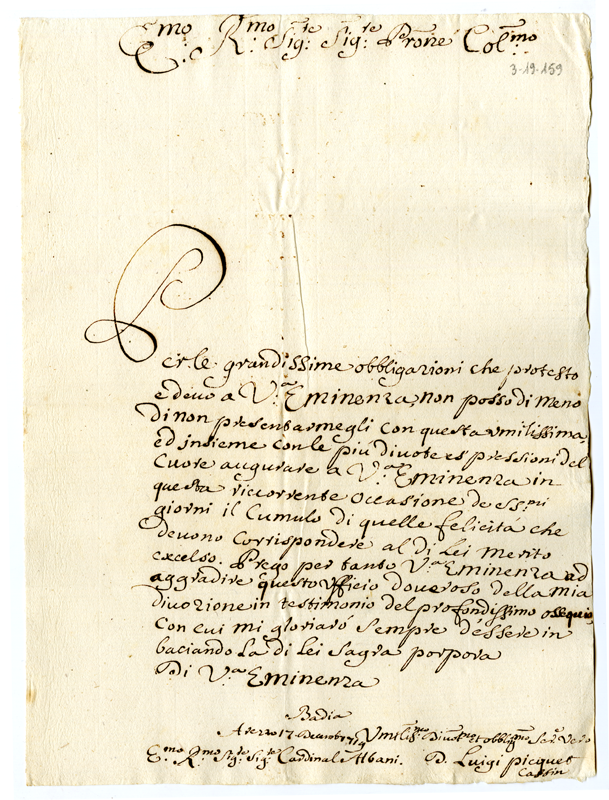 E.mo e R.mo Sig.re Sig.re Prone Col.mo
3-19-159
Per le grandissime obbligazioni che protesto
e devo a V.a Eminenza, non posso di meno
di non presentarmegli con questa umilissima,
ed insieme con le più divote espressioni del
Cuore augurare a V.a Eminenza in
questa ricorrente occasione de ss.mi
giorni il Cumulo di quelle felicità che
devono corrispondere al di Lei merito
excelso. Prego per tanto V.a Eminenza ad
aggradire questo Ufficio doveroso della mia
divozione in testimonio del profondissimo ossequio,
con cui mi glorierò sempre d'essere in
baciando La di Lei Sagra porpora
Di V.a Eminenza
Badia
Arezzo 17 Decembre 1719 Umilis.mo Divot.mo et obblig.mo Ser.e Vero
E.mo R.mo Sig.re Sig.re Cardinal Albani. D. Luigi Picquet
Cassin